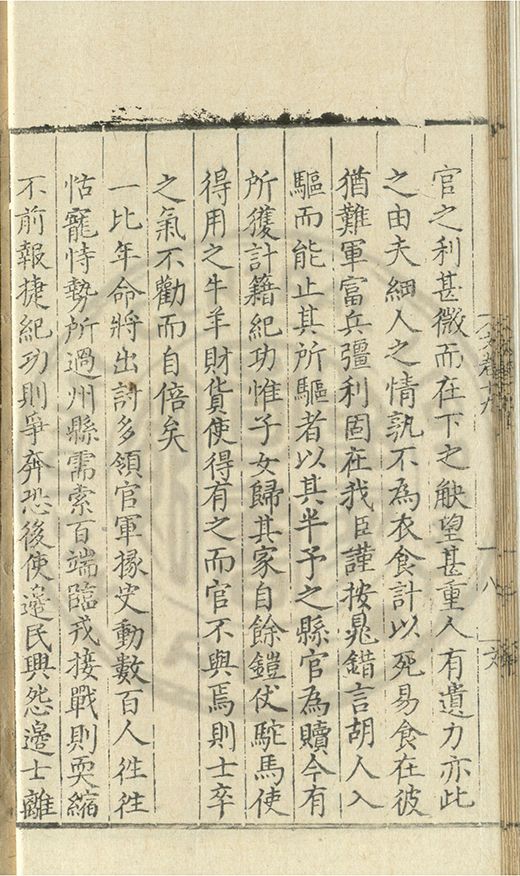 官之利甚微而在下之觖望甚重人有遺力亦此
之由夫綱人之情孰不為衣食計以死易食在彼
猶難軍富兵彊利固在我臣謹按晁錯言胡人入
驅而能止其所驅者以其半予之縣官為贖今有
所獲計籍紀功惟子女歸其家自餘鎧仗駝馬使
得用之牛羊財貨使得有之而官不與焉則士卒
之氣不勸而自倍矣
一比年命將出討多領官軍掾史動數百人徃徃
怙寵恃勢所過州縣需索百端臨戎接戰則耎縮
不前報捷紀功則爭奔恐後使邉民興怨邉士離